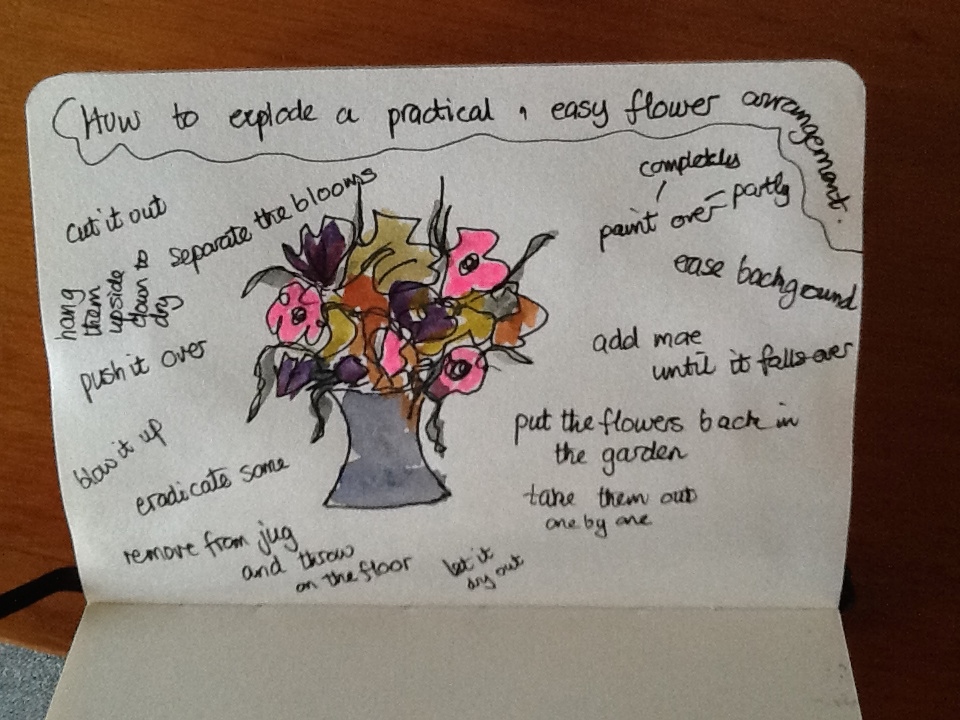 How to explode a practical , easy flower arrangement.
cut it out
separate the blooms
hang
them
upside
down to
dry
push it over
blow it up
eradicate some
remove from jug
and throw
on the floor
let it
dry out
completely
paint over partly
ease background
add more
until it falls over
put the flowers back in
the garden
take them out
one by one